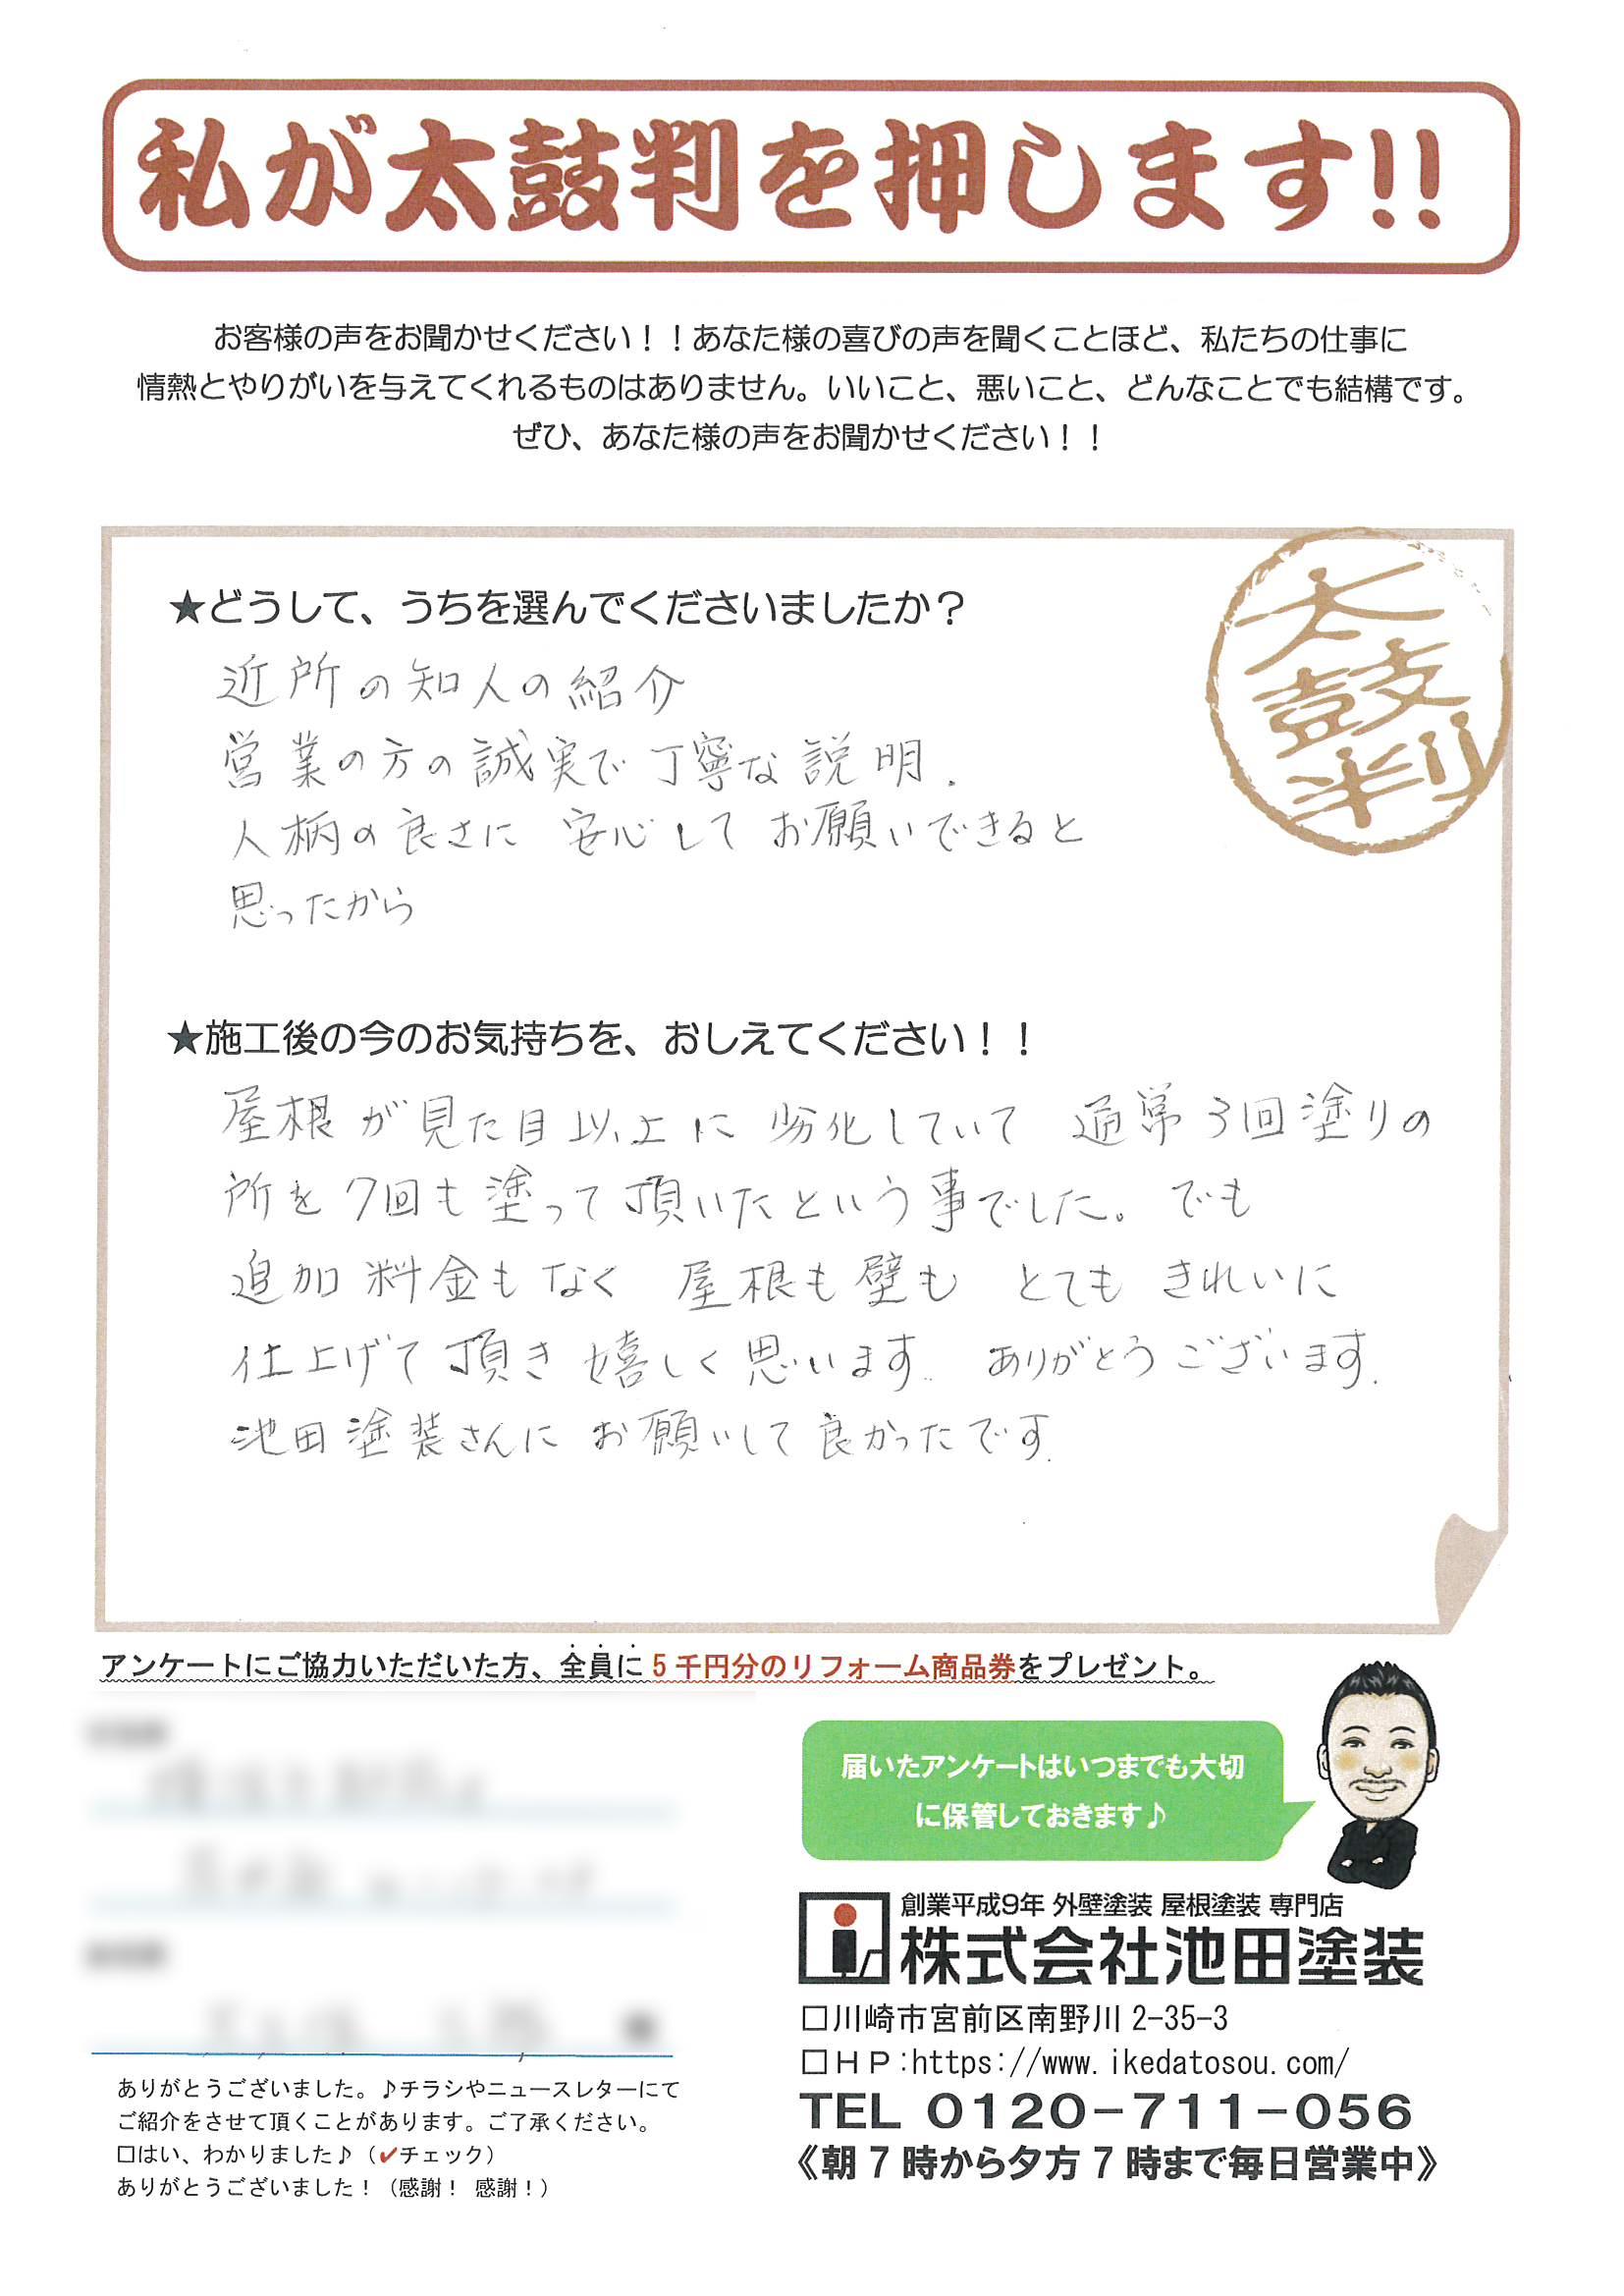 私が太鼓判を押します!!
お客様の声をお聞かせください！！あなた様の喜びの声を聞くことほど、私たちの仕事に
情熱とやりがいを与えてくれるものはありません。いいこと、悪いこと、どんなことでも結構です。
ぜひ、あなた様の声をお聞かせください！！
太鼓判
★どうして、うちを選んでくださいましたか？
近所の知人の紹介
営業の方の誠実で丁寧な説明.
人柄の良さに 安心して お願いできると
思ったから
★施工後の今のお気持ちを、おしえてください！！
屋根が見た目以上に 劣化していて 通常3回塗りの
所を7回も塗って頂いたという事でした。でも
追加料金もなく 屋根も壁も とても きれいに
仕上げて頂き 嬉しく思います. ありがとうございます.
池田塗装さんに お願いして良かったです.
アンケートにご協力いただいた方、全員に5千円分のリフォーム商品券をプレゼント。
届いたアンケートはいつまでも大切
に保管しておきます♪
創業平成9年 外壁塗装 屋根塗装 専門店
株式会社池田塗装
□川崎市宮前区南野川 2-35-3
□ＨＰ:https://www.ikedatosou.com/
TEL 0120-711-056
《朝7時から夕方7時まで毎日営業中》
ありがとうございました。♪チラシやニュースレターにて
ご紹介をさせて頂くことがあります。ご了承ください。
□はい、わかりました♪（✔チェック）
ありがとうございました！（感謝！ 感謝！）